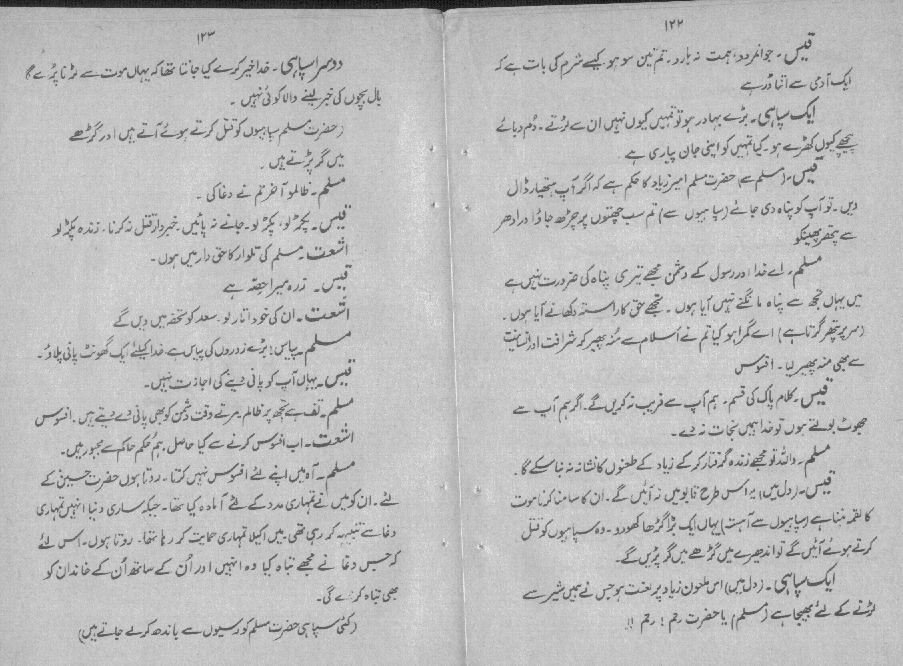 ۱۲۲
قیس۔ جوانمردو! ہمت نہ ہارو۔ تم تین سو ہو۔ کیسے شرم کی بات ہے کہ
ایک آدمی سے اتنا ڈر ہے
ایک سپاہی۔ بڑے بہادر ہو تو تمہیں کیوں نہیں ان سے لڑتے۔ دُم دبائے
پیچھے کیوں کھڑے ہو۔ کیا تمہیں کو اپنی جان پیاری ہے
قیس۔ (مسلم سے) حضرت مسلم امیر زیاد کا حکم ہے کہ اگر آپ ہتھیار ڈال
دیں۔ تو آپ کو پناہ دی جائے (سپاہیوں سے) تم سب چھتوں پر چڑھ جاؤ اور ادھر
سے پتھر پھینکو
مسلم۔ اے خدا اور رسول کے دشمن مجھے تیری پناہ کی ضرورت نہیں ہے
میں یہاں تجھ سے پناہ مانگنے نہیں آیا ہوں۔ تجھے حق کا راستہ دکھانے آیا ہوں۔
(سر پر پتھر گرتا ہے) اے گمراہو کیا تم نے اسلام سے منہ پھیر کر شرافت اور انسانیت
سے بھی منہ پھیر لیا۔ افسوس
قیس۔ کلام پاک کی قسم۔ ہم آپ سے فریب نہ کریں گے۔ اگر ہم آپ سے
جھوٹ بولتے ہوں تو خدا ہمیں نجات نہ دے۔
مسلم۔ واللہ تو مجھے زندہ گرفتار کر کے زیاد کے طعنوں کا نشانہ نہ بنا سکے گا۔
قیس۔ (دل میں) یہ اس طرح قابو میں نہ آئیں گے۔ ان کا سامنا کرنا موت
کا لقمہ بننا ہے (سپاہیوں سے آہستہ) یہاں ایک بڑا گڑھا کھودو۔ وہ سپاہیوں کو قتل
کرتے ہوئے آئیں گے تو اندھیرے میں گڑھے میں گر پڑیں گے۔
ایک سپاہی۔ (دل میں) اس ملعون زیاد پر لعنت ہو جس نے ہمیں شیر سے
لڑنے کے لئے بھیجا ہے (مسلم) یا حضرت رحم! رحم!!
۱۲۳
دوسرا سپاہی۔ خدا خیر کرے کیا جانتا تھا کہ یہاں موت سے لڑنا پڑے گا
بال بچوں کی خبر لینے والا کوئی نہیں۔
(حضرت مسلم سپاہیوں کو قتل کرتے ہوئے آتے ہیں اور گڑھے
میں گر پڑتے ہیں۔
مسلم۔ ظالمو آخر تم نے دغا کی۔
قیس۔ پکڑ لو، پکڑ لو۔ جانے نہ پائیں۔ خبردار قتل نہ کرنا۔ زندہ پکڑ لو
اشعت۔ مسلم کی تلوار کا حق دار میں ہوں۔
قیس۔ زرہ میرا حصہ ہے
اشعت۔ ان کی خود اتار لو سعد کو تحفہ میں دیں گے
مسلم۔ پیاس! بڑے زوروں کی پیاس ہے خدا کیلئے ایک گھونٹ پانی پلاؤ۔
قیس۔ یہاں آپ کو پانی دینے کی اجازت نہیں۔
مسلم۔ تف ہے تجھ پر ظالم۔ مرتے وقت دشمن کو بھی پانی دے دیتے ہیں۔ افسوس
اشعت۔ اب افسوس کرنے سے کیا حاصل۔ ہم حکم حاکم سے مجبور ہیں۔
مسلم۔ آہ میں اپنے لئے افسوس نہیں کرتا۔ روتا ہوں حضرت حسین کے
لئے۔ ان کو میں نے تمہاری مدد کے لئے آمادہ کیا تھا۔ جبکہ ساری دنیا انہیں تمہاری
دغا سے متنبہ کر رہی تھی میں اکیلا تمہاری حمایت کر رہا تھا۔ روتا ہوں۔ اس لئے
کہ جس دغا نے مجھے تباہ کیا وہ انہیں اور اُن کے ساتھ اُن کے خاندان کو
بھی تباہ کر دے گی۔
(کئی سپاہی حضرت مسلم کو رسیوں سے باندھ کر لے جاتے ہیں)